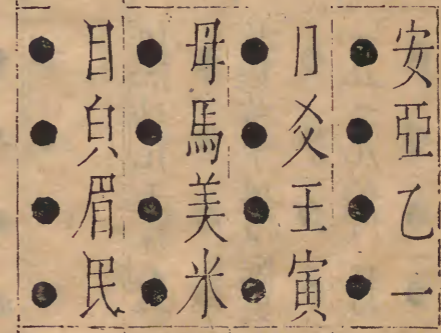 安亞乙一
●●●●
爻王寅
●●●●
母馬美米
●●●●
目皃眉民
●●●●